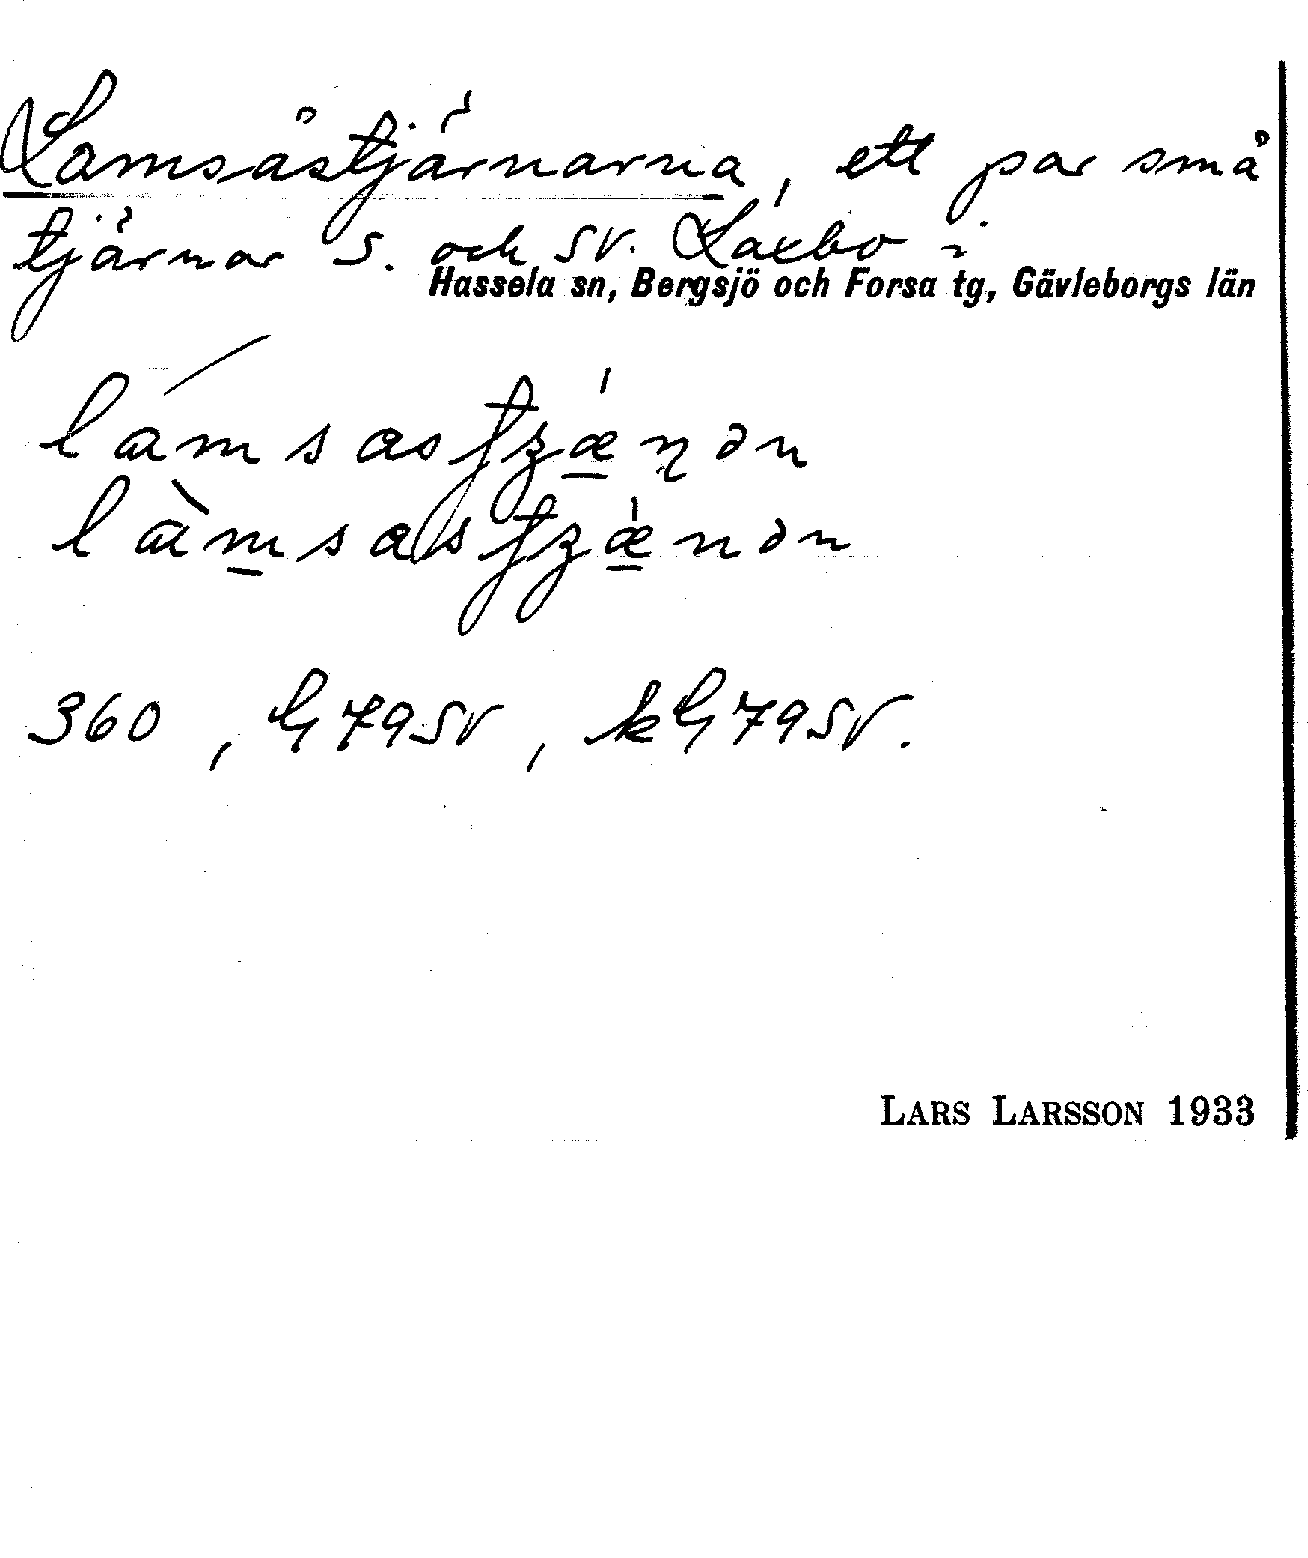 Lamsåstjärnarna, ett par små
tjärnar S. och SV. Laxbo i
Hassela sn, Bergsjö och Forsa tg, Gävleborgs län
360, G79SV, kG79SV.
LARS LARSSON 1933